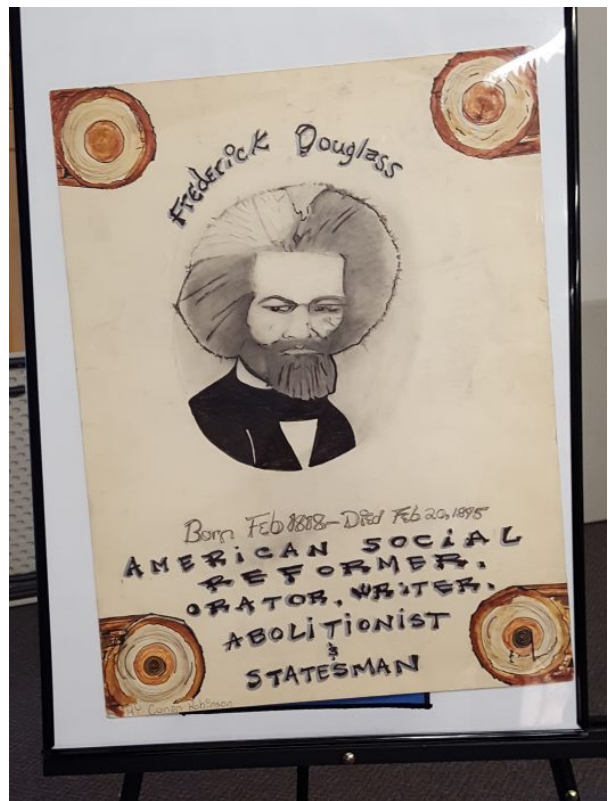 Frederick Douglass
Born Feb 1818-Died Feb 20, 1895
AMERiCAN SOCiAL
REFORMER.
ORATOR, WRiTER.
ABOLiTiONiST
&
STATESMAN
Robinson